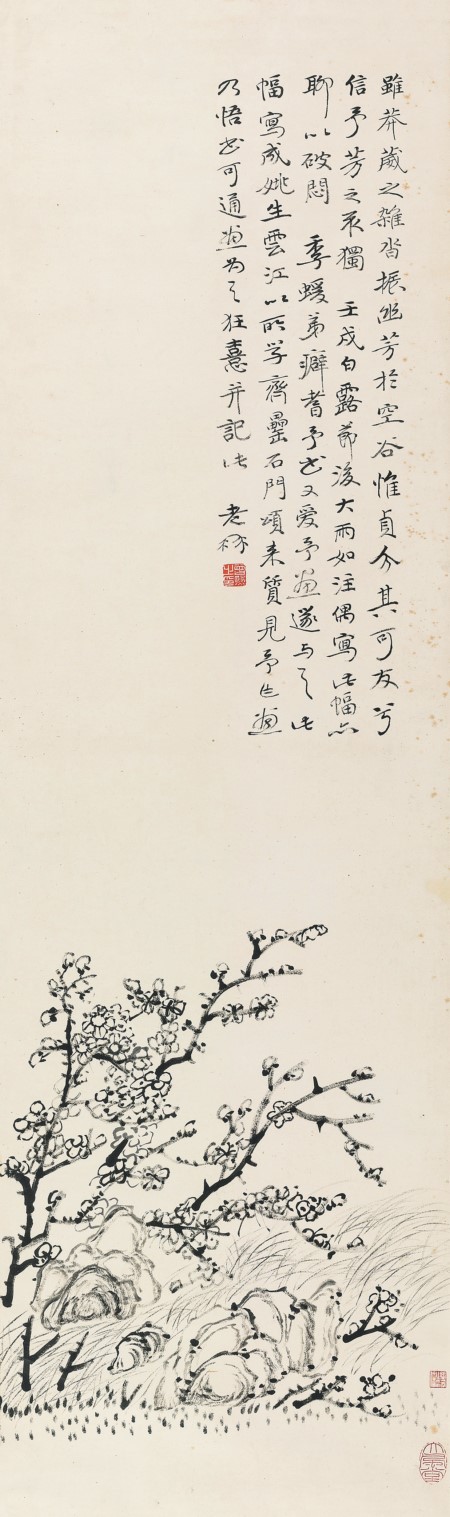 雖莽葳之雜沓振幽芳於空谷惟貞介其可友兮
信予芳之永獨 壬戌白露節後大雨如注偶寫此幅亦
聊以破悶 季蝯弟癖耆予書又愛予畫遂与之此
幅寫成姚生雲江以所学齊罍石門頌来質見予作畫
乃悟書可通畫为之狂憙并記此 老